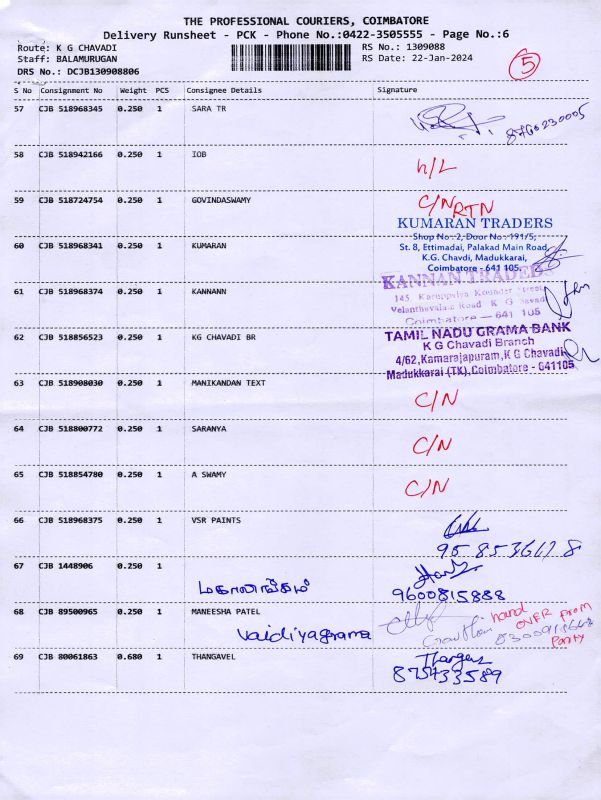 THE PROFESSIONAL COURIERS, COIMBATORE
Delivery Runsheet - PCK - Phone No.:0422-3505555 - Page No.:6
Route: K G CHAVADI
Staff: BALAMURUGAN
DRS No.: DCJB130908806
RS No.: 1309088
RS Date: 22-Jan-2024
5
S No Consignment No Weight PCS Consignee Details Signature
57 CJB 518968345 0.250 1 SARA TR
8760230005
58 CJB 518942166 0.250 1 IOB h/L
59 CJB 518724754 0.250 1 GOVINDASWAMY C/N RTN
KUMARAN TRADERS
Shop No:2, Door No:191/5,
60 CJB 518968341 0.250 1 KUMARAN St. 8, Ettimadai, Palakad Main Road,
K.G. Chavdi, Madukkarai,
Coimbatore - 641 105.
KANNAN TRADERS
61 CJB 518968374 0.250 1 KANNANN 145 Karuppiya Kounder Street
Velanthavalam Road K G Chavadi
Coimbatore — 641 105
62 CJB 518856523 0.250 1 KG CHAVADI BR TAMIL NADU GRAMA BANK
K G Chavadi Branch
4/62, Kamarajapuram, K G Chavadi
Madukkarai (TK), Coimbatore - 641105
63 CJB 518908030 0.250 1 MANIKANDAN TEXT C/N
64 CJB 518800772 0.250 1 SARANYA C/N
65 CJB 518854780 0.250 1 A SWAMY C/N
66 CJB 518968375 0.250 1 VSR PAINTS
67 CJB 1448906 0.250 1
மகாலிங்கம் 9600815888
68 CJB 89500965 0.250 1 MANEESHA PATEL hand OVER from Party
Vaidiyagrama
69 CJB 80061863 0.680 1 THANGAVEL
875433589